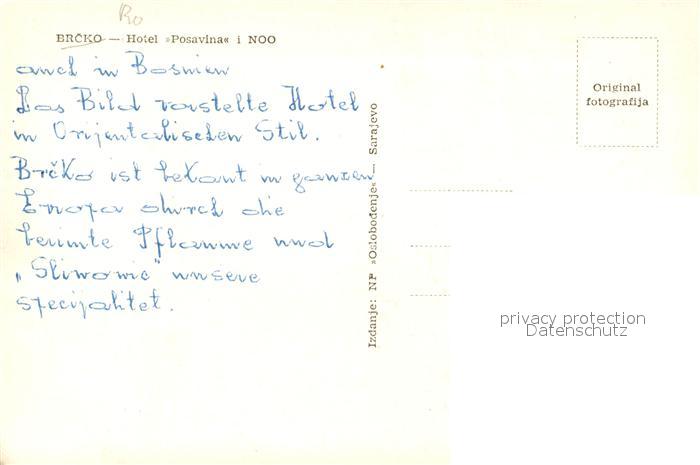 Ro
BRČKO — Hotel »Posavina« i NOO
auch in Bosnien
Das Bild vorstelte Hotel
in Orijentalischen Stil.
Brčko ist bekant in ganzen
Evropa durch die
berimte Pflamme und
„Sliwowic" unsere
specijalitet.
Izdanje: NP »Oslobođenje« — Sarajevo
Original
fotografija
privacy protection
Datenschutz